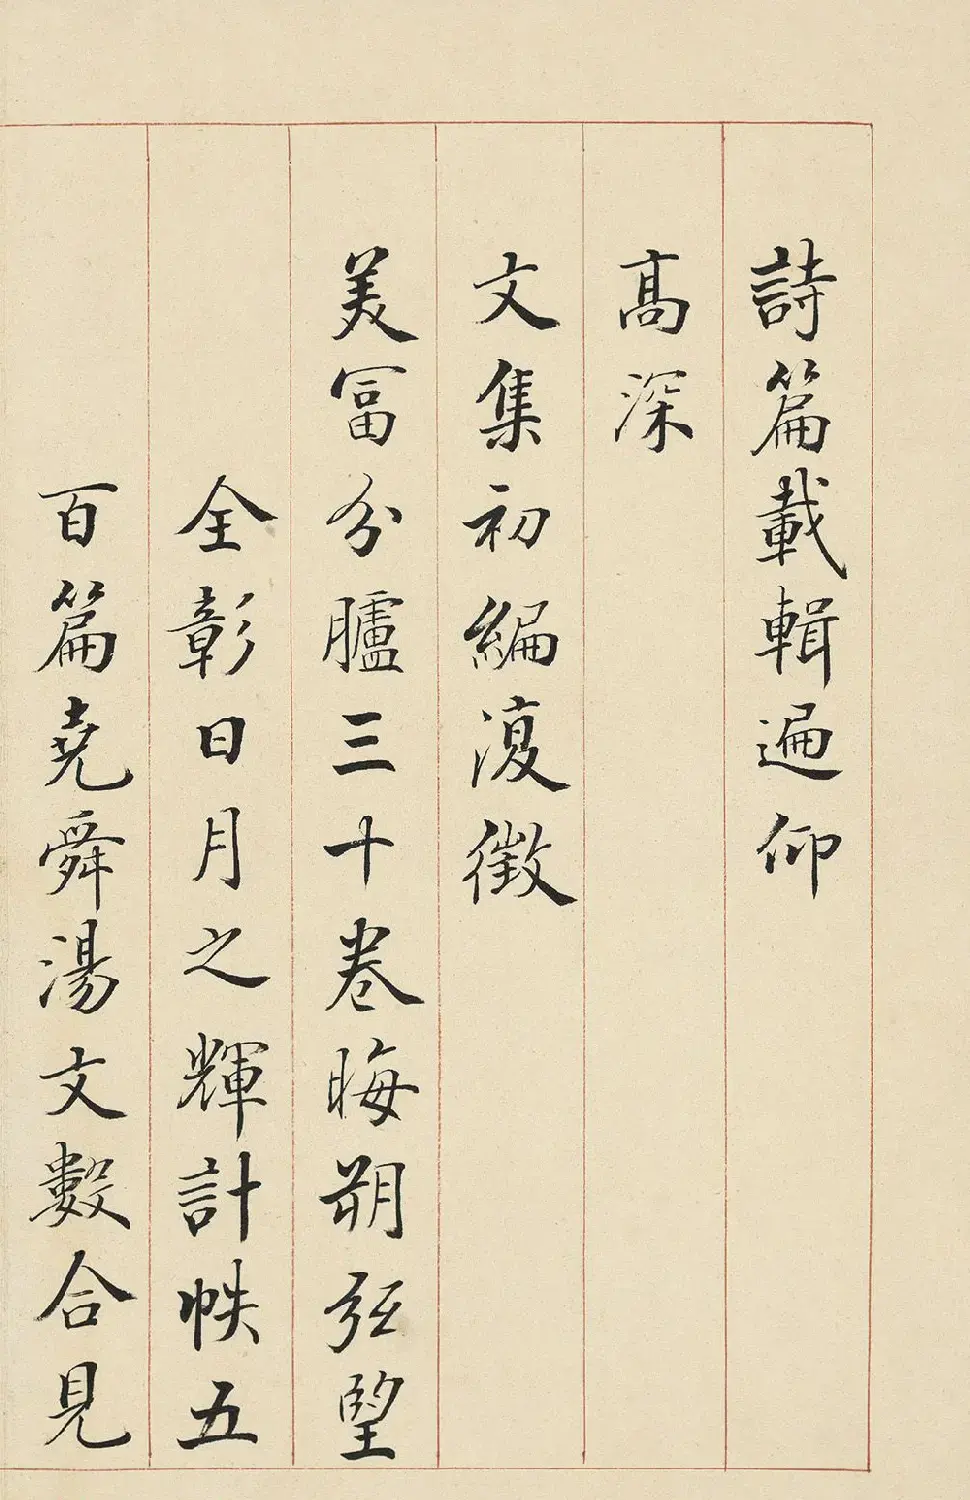 詩篇載輯遍仰
高深
文集初編復徵
美富分臚三十卷晦朔弦望
全彰日月之輝計帙五
百篇堯舜湯文數合見